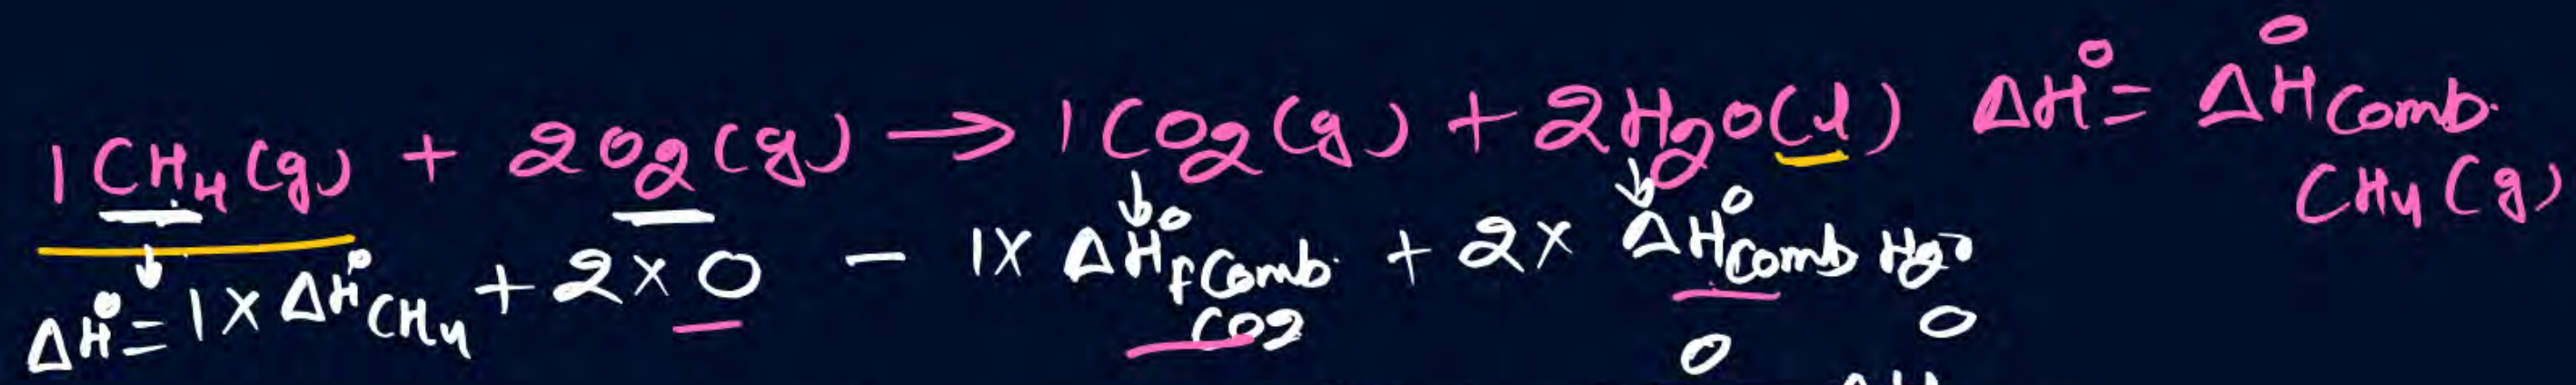 1CH4(g) + 2O2(g) → 1CO2(g) + 2H2O(l) ΔH° = ΔH°Comb.
CH4(g)
ΔH° = 1 × ΔH°CH4 + 2 × 0 - 1× ΔH°fComb. + 2× ΔH°Comb H2O
CO2
0 0
ΔH